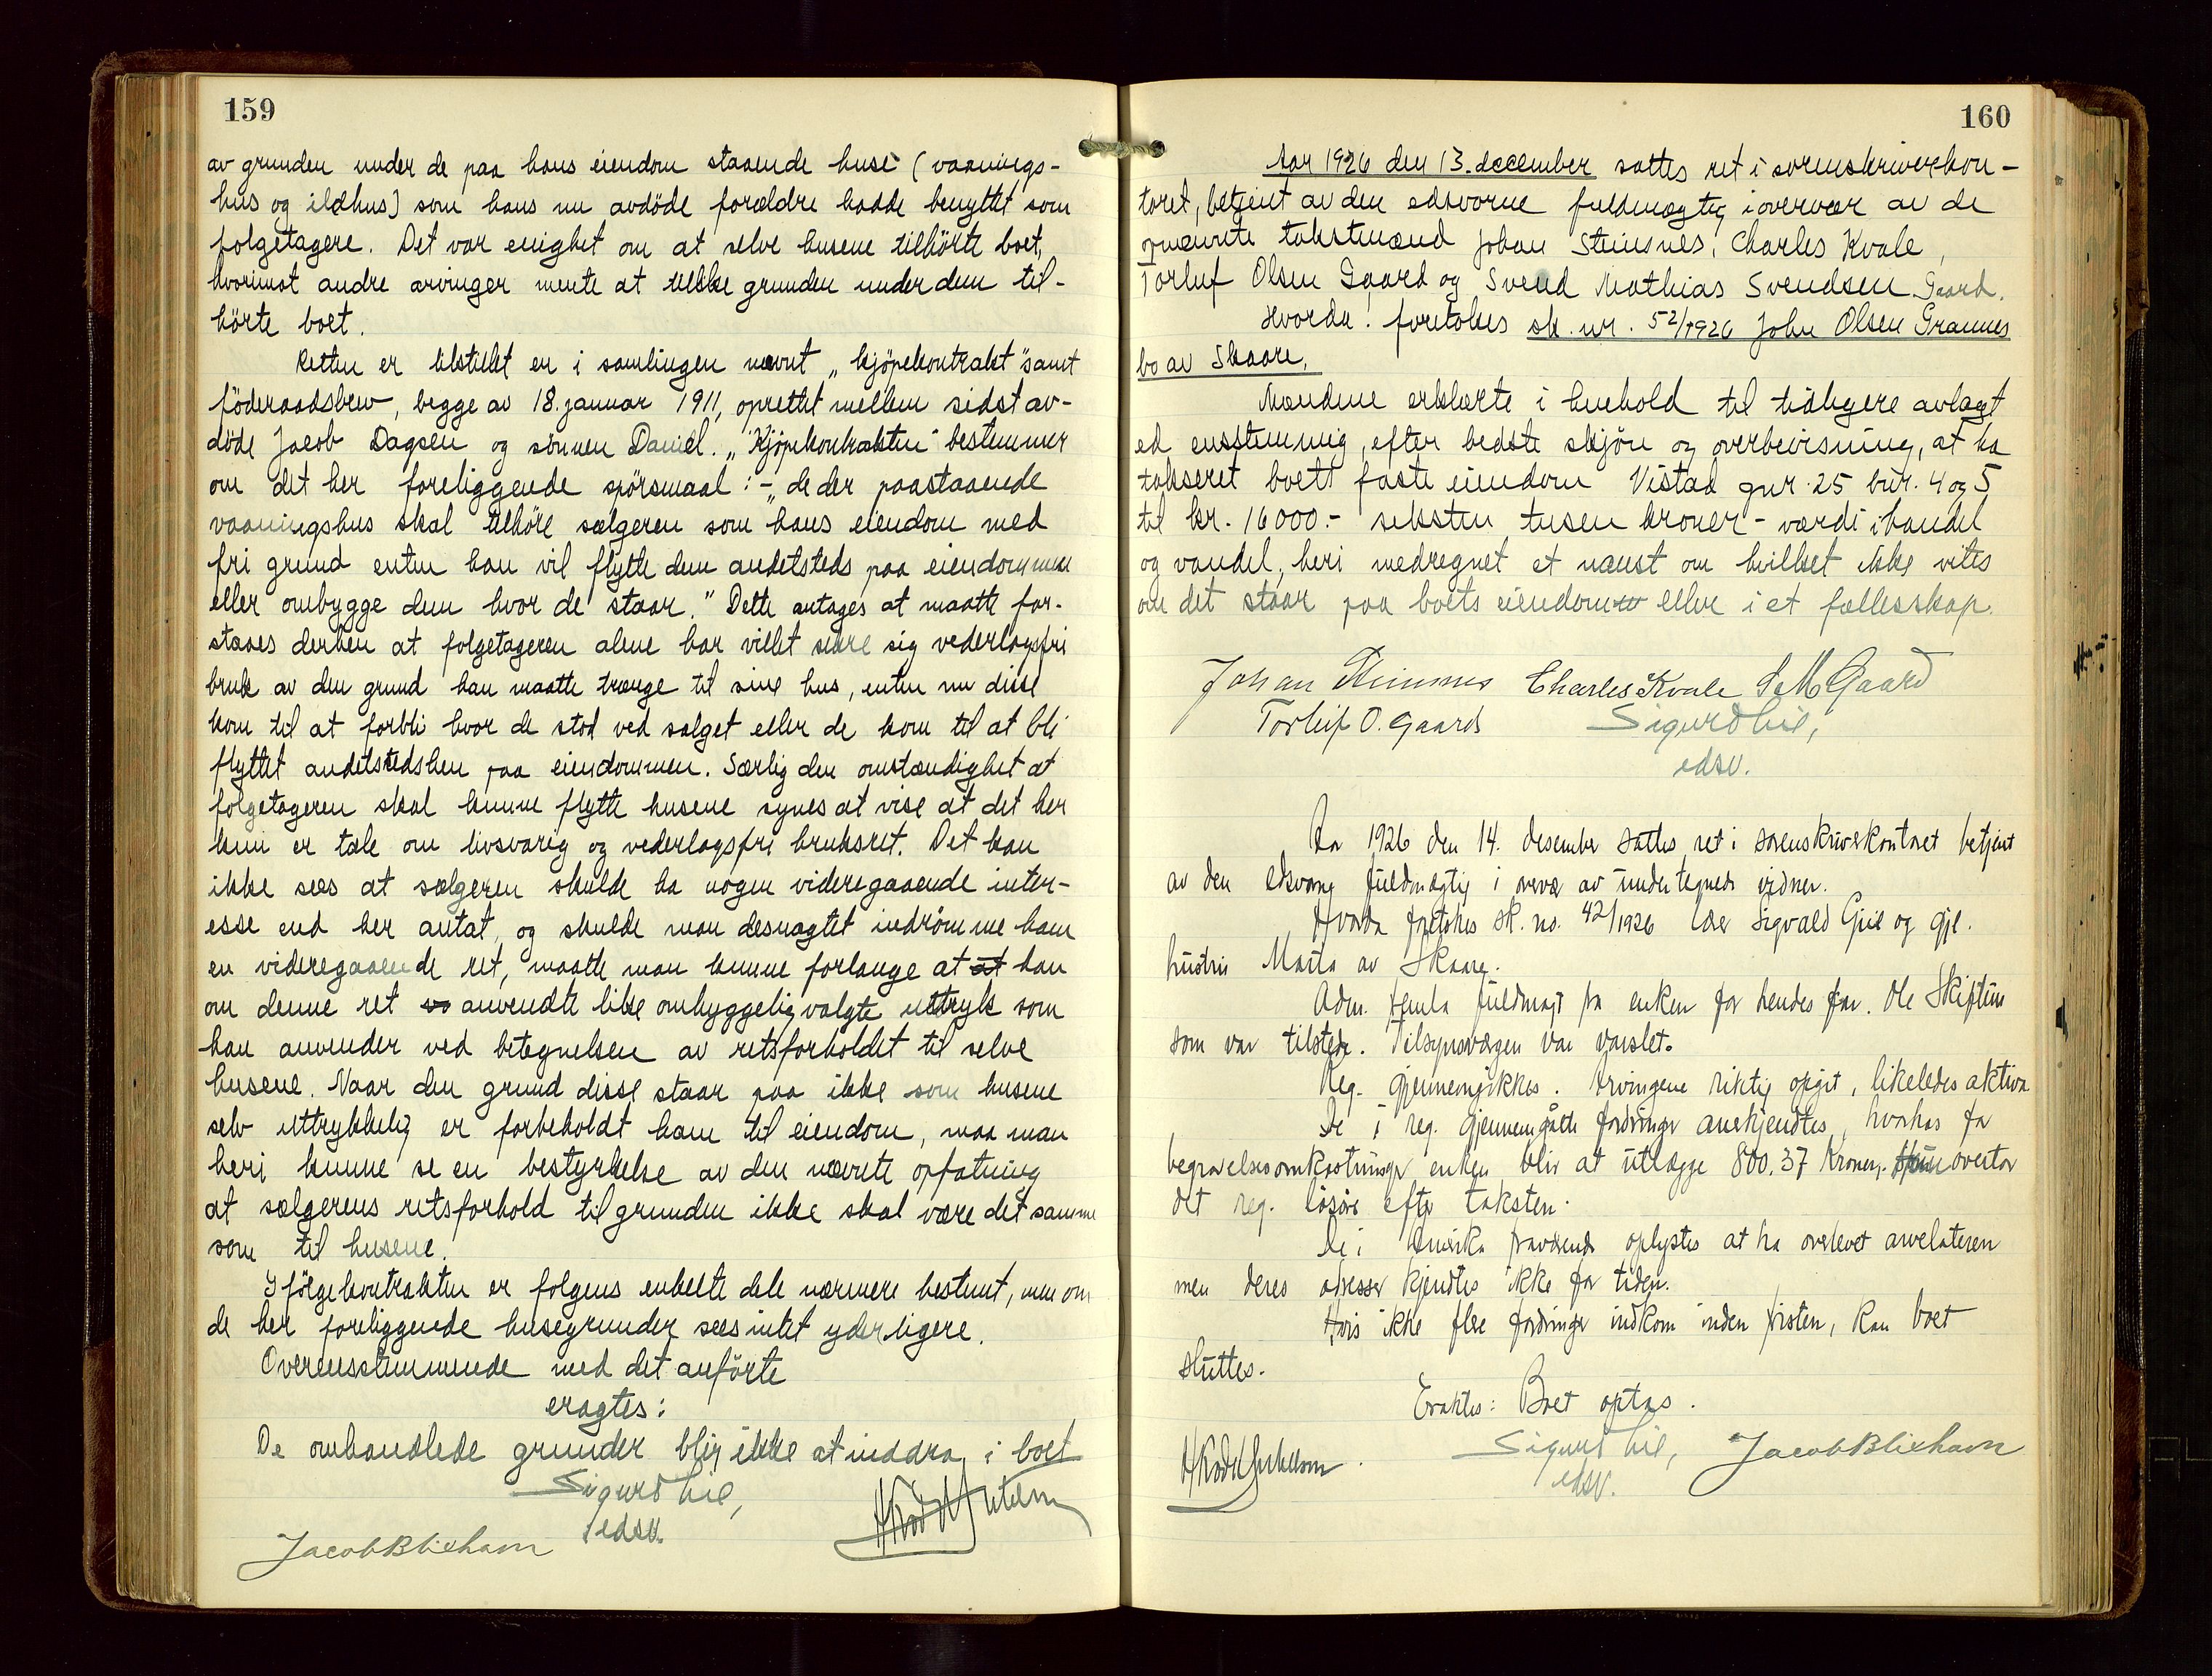 159
av grunden under de paa hans eiendom staaende huse (vaanings-
hus og ildhus) som hans nu avdöde forældre hadde benyttet som
folgetagere. Det var enighet om at selve husene tilhörte boet,
hvorimot andre arvinger mente at tillike grunden under dem til-
hörte boet.
Retten er tilstillet en i samlingen nævnt „kjöpekontrakt" samt
föderaadsbrev, begge av 18. januar 1911, oprettet mellem sidst av-
döde Jacob Dagsen og sönnen Daniel. „Kjöpekontrakten" bestemmer
om det her foreliggende spörsmaal: - „de der paastaaende
vaaningshus skal tilhöre sælgeren som hans eiendom med
fri grund enten han vil flytte dem andetsteds paa eiendommen
eller ombygge dem hvor de staar." Dette antages at maatte for-
staaes derhen at folgetageren alene har villet sikre sig vederlagsfri
bruk av den grund han maatte trænge til sine hus, enten nu disse
kom til at forbli hvor de stod ved salget eller de kom til at bli
flyttet andetstedshen paa eiendommen. Særlig den omstændighet at
folgetageren skal kunne flytte husene synes at vise at det her
kun er tale om livsvarig og vederlagsfri bruksret. Det kan
ikke sees at sælgeren skulde ha nogen videregaaende inter-
esse end her antat, og skulde man desuagtet indrömme ham
en videregaaende ret, maatte man kunne forlange at at han
om denne ret so anvendte like omhyggelig valgte uttryk som
han anvender ved betegnelsen av retsforholdet til selve
husene. Naar den grund disse staar paa ikke som husene
selv uttrykkelig er forbeholdt ham til eiendom, maa man
heri kunne se en bestyrkelse av den nævnte opfatning
at sælgerens retsforhold til grunden ikke skal være det samme
som til husene.
I fölgekontrakten er folgens enkelte dele nærmere bestemt, men om
de her foreliggende husegrunder sees intet yderligere.
Overensstemmende med det anförte
eragtes:
De omhandlede grunder blir ikke at inddra i boet
Sigurd Lie,
edsv.
Jacob Blixhavn
160
Aar 1926 den 13. december sattes ret i sorenskriverkon-
toret, betjent av den edsvorne fuldmægtig i overvær av de
opnævnte takstmænd Johan Steinsnes, Charles Kvale,
Torleif Olsen Gaard og Svend Mathias Svendsen Gaard.
Hvorda: foretokes sk. nr. 52/1926 John Olsen Grannes
bo av Skaare.
Mændene erklærte i henhold til tidligere avlagt
ed enstemmig, efter bedste skjön og overbevisning, at ha
takseret boets faste eiendom Vistad gnr. 25 bnr. 4 og 5
til kr. 16000.- seksten tusen kroner - værdi i handel
og vandel, heri medregnet et naust om hvilket ikke vites
om det staar paa boets eiendom eller i et fællesskap.
Johan Steinsnes Charles Kvale S. M. Gaard
Torleif O. Gaard Sigurd Lie,
edsv.
Aar 1926 den 14. desember sattes ret i sorenskriverkontoret betjent
av den edsvorne fuldmægtig i overvær av undertegnede vidner.
Hvorda foretokes sk. no. 42/1926 Sigvald Gjil og gjl.
hustru Marta av Skaare.
Adm. fremla fuldmagt fra enken for hendes far. Ole Skiftun
som var tilstede. Tilsynsværgen var varslet.
Reg. gjennemgikkes. Arvingene riktig opgit, likeledes aktiva
De i reg. gjennemgåtte fordringer anerkjendtes, hvorhos for
begravelsesomkostninger enken blir at utlægge 800,37 Kroner. Hun overtar
det reg. lösöre efter taksten.
De i Amerika fraværende oplystes at ha overlevet arvelateren
men deres adresser kjendtes ikke for tiden.
Hvis ikke flere fordringer indkom inden fristen, kan boet
sluttes.
Eraktes: Boet optas.
Sigurd Lie, Jacob Blixhavn
edsv.